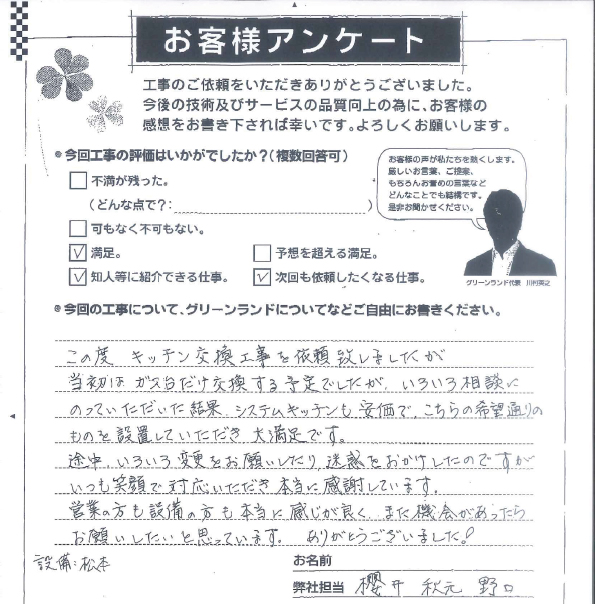 お客様アンケート
工事のご依頼をいただきありがとうございました。
今後の技術及びサービスの品質向上の為に、お客様の
感想をお書き下されば幸いです。よろしくお願いします。
今回工事の評価はいかがでしたか？（複数回答可）
不満が残った。
（どんな点で？：）
可もなく不可もない。
満足。
予想を超える満足。
知人等に紹介できる仕事。
次回も依頼したくなる仕事。
お客様の声が私たちを熱くします。
厳しいお言葉、ご提案、
もちろんお誉めの言葉など
どんなことでも結構です。
是非お聞かせください。
グリーンランド代表 川村英之
今回の工事について、グリーンランドについてなどご自由にお書きください。
この度 キッチン交換工事を依頼致しましたが
当初は ガス台だけ交換する予定でしたが、いろいろ相談に
のっていただいた結果、システムキッチンも安価で、こちらの希望通りの
ものを設置していただき 大満足です。
途中、いろいろ変更をお願いしたり、迷惑をおかけしたのですが
いつも笑顔で対応いただき 本当に感謝しています。
営業の方も設備の方も本当に感じが良く、また機会があったら
お願いしたいと思っています。 ありがとうございました！
設備：松本
お名前
弊社担当 櫻井 秋元 野口